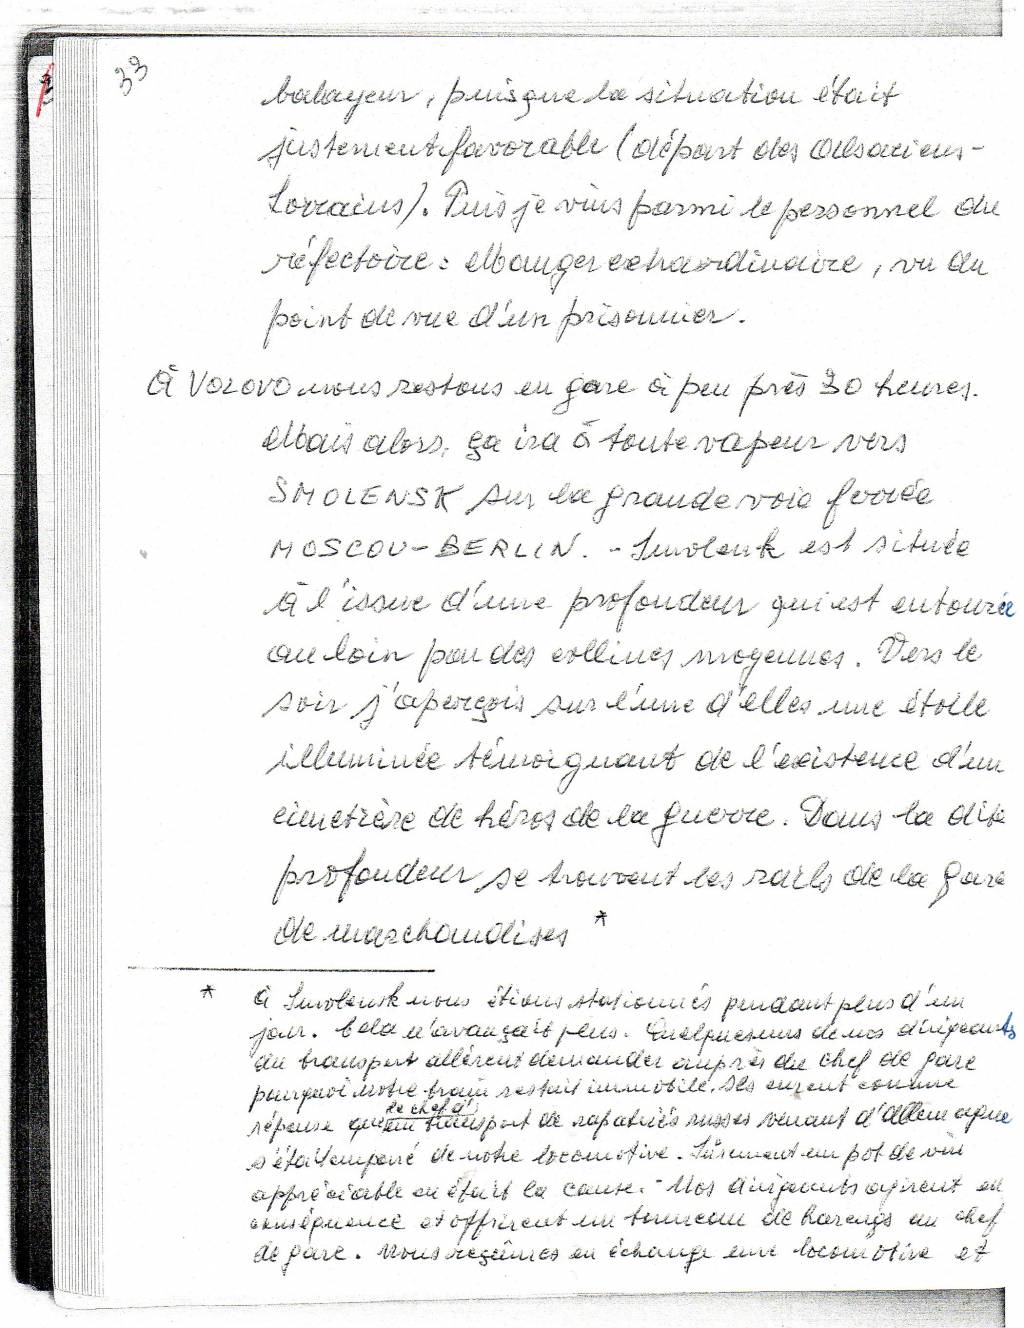 33
balayeur, puisque la situation était
justement favorable (départ des Alsaciens-
Lorrains). Puis je vins parmi le personnel du
réfectoire: Manger extraordinaire, vu du
point de vue d'un prisonnier.
À Vozovo nous restons en gare à peu près 30 heures.
Mais alors, ça ira à toute vapeur vers
SMOLENSK sur la grande voie ferrée
MOSCOU-BERLIN. - Smolensk est située
à l'issue d'une profondeur qui est entourée
au loin par des collines moyennes. Vers le
soir j'aperçois sur l'une d'elles une étoile
illuminée témoignant de l'existence d'un
cimetière de héros de la guerre. Dans la dite
profondeur se trouvent les rails de la gare
de marchandises *
* à Smolensk nous étions stationnés pendant plus d'un
jour. Cela n'avançait plus. Quelques uns de nos dirigeants
du transport allèrent demander auprès du chef de gare
pourquoi notre train restait immobile. Ils eurent comme
réponse que le chef d'un transport de rapatriés russes venant d'Allemagne
s'était emparé de notre locomotive. Sûrement un pot de vin
appréciable en était la cause. - Nos dirigeants agirent en
conséquence et offrirent un tonneau de harengs au chef
de gare. Nous reçûmes en échange une locomotive et